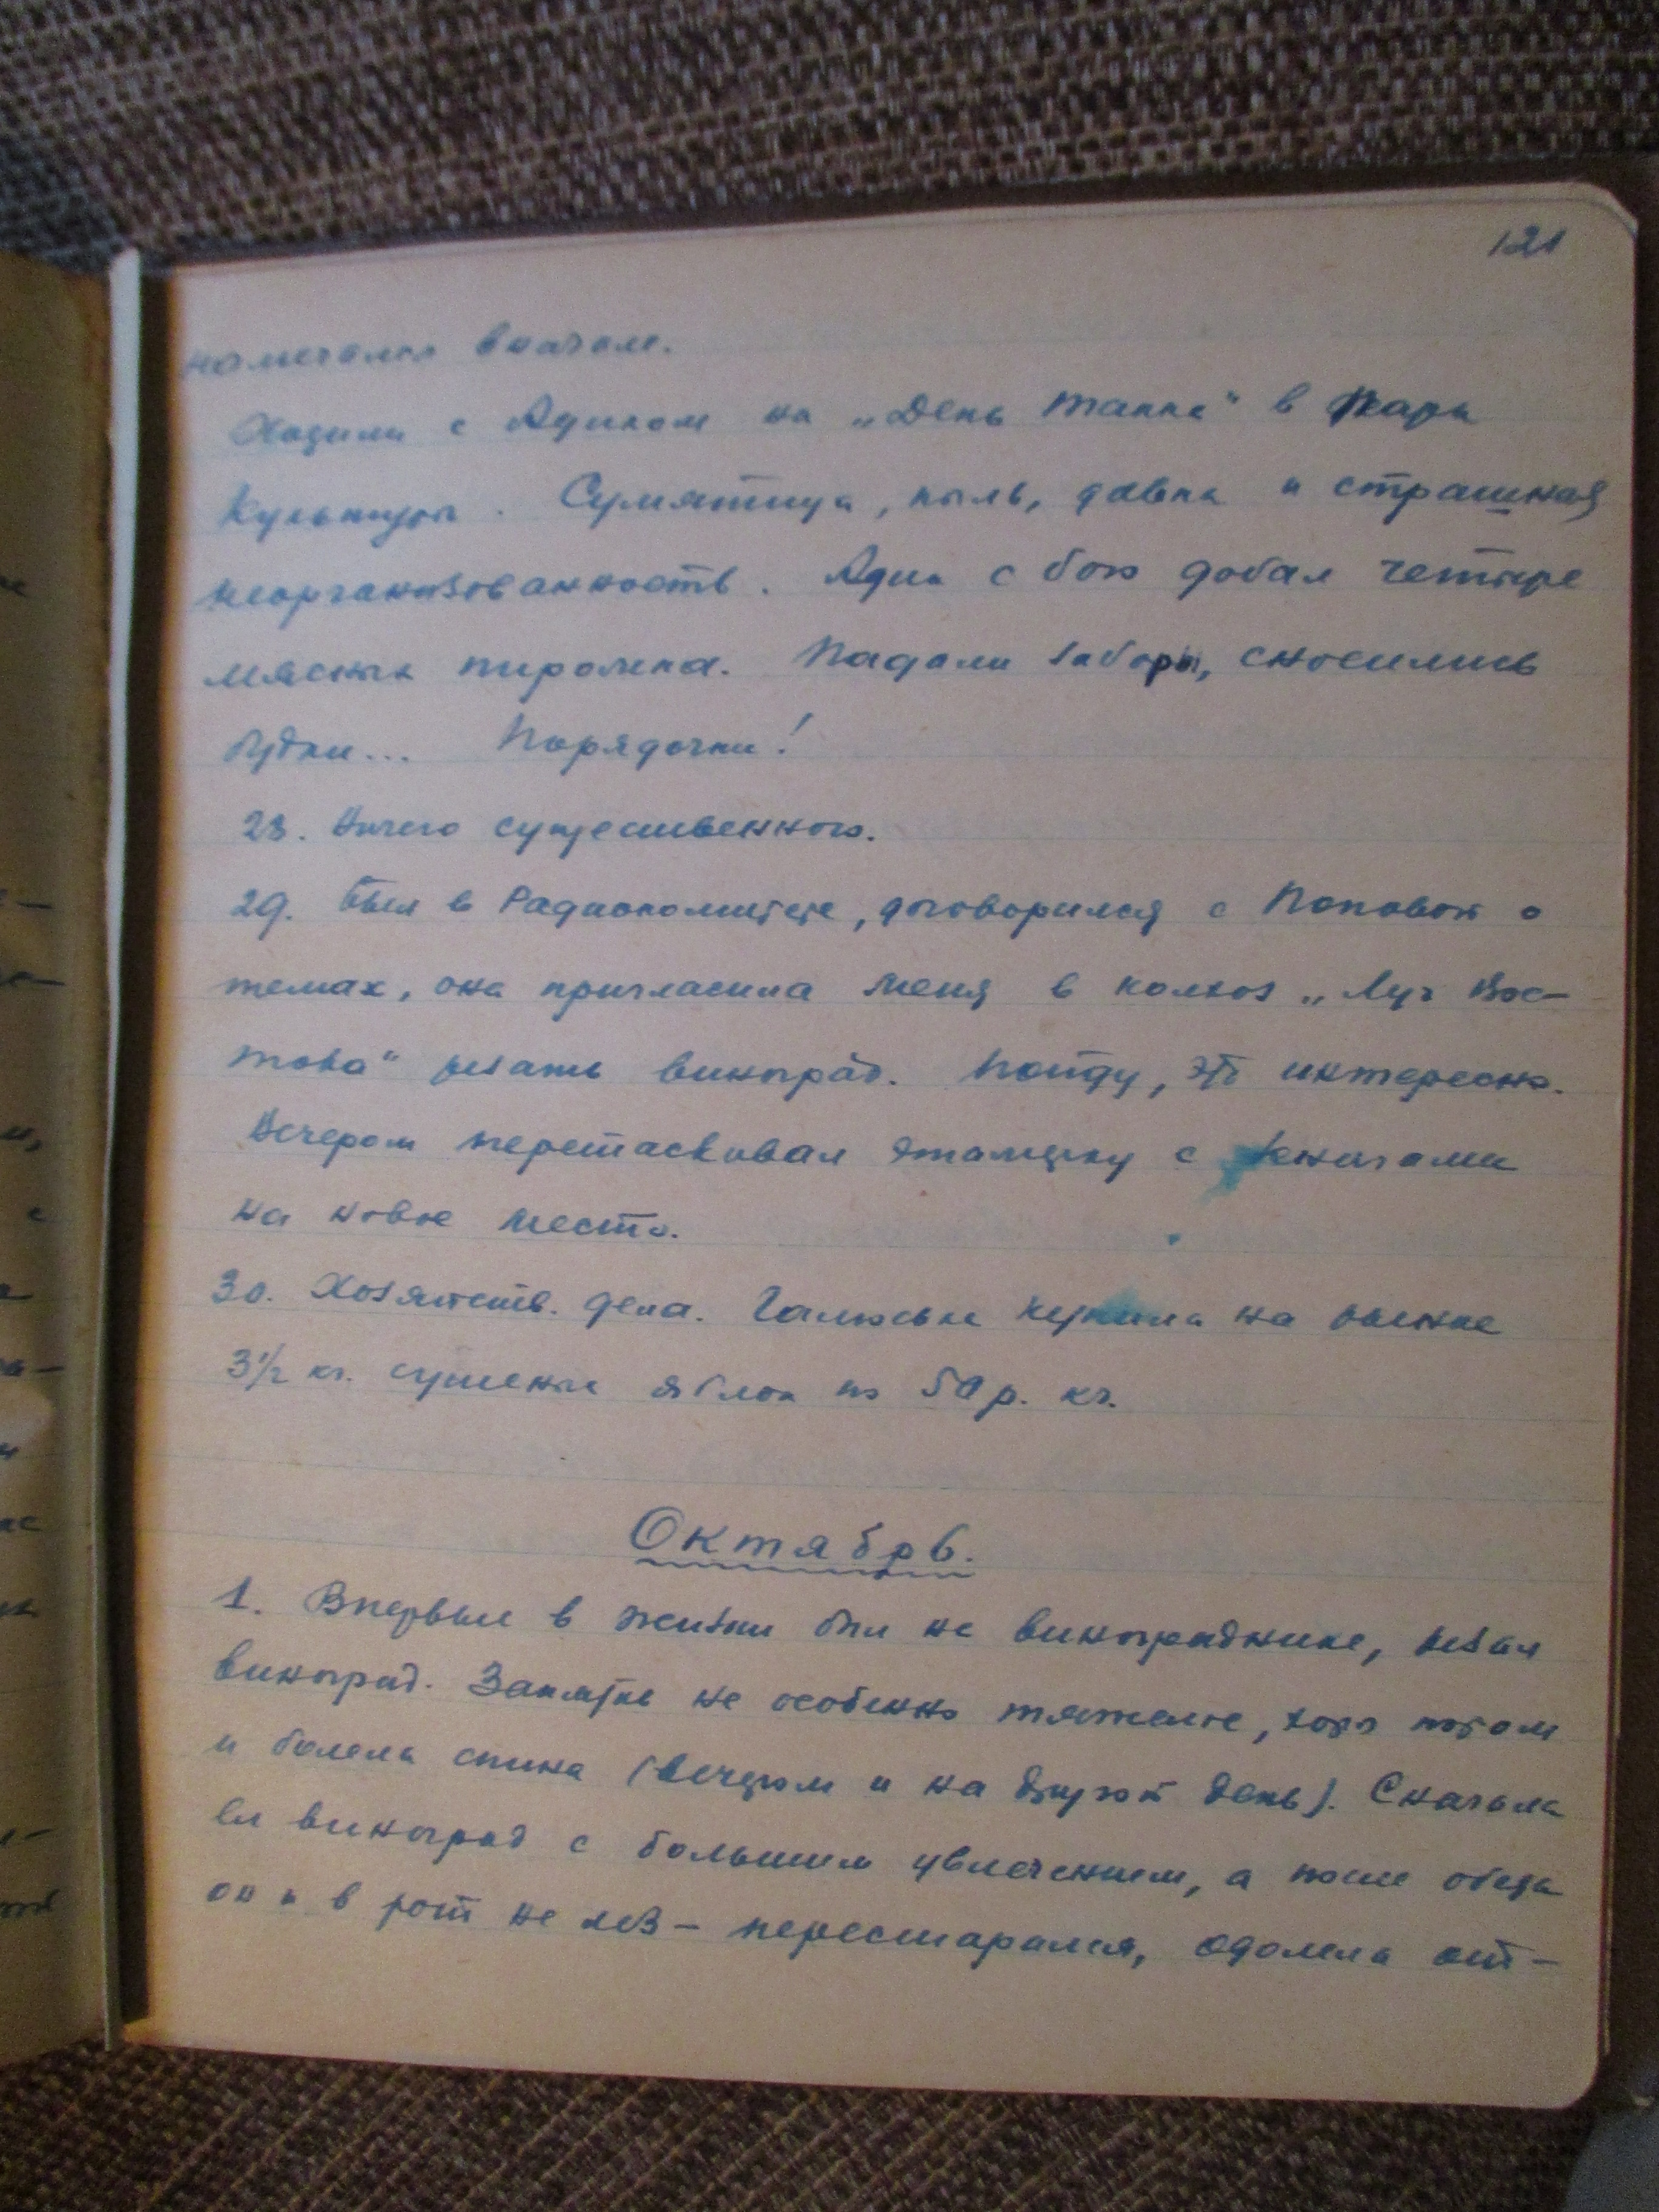 121
намечался вначале.
Ходили с Адиком на „День танка" в Парк
Культуры. Сумятица, пыль, давка и страшная
неорганизованность. Адик с бою добыл четыре
мясных пирожка. Падали заборы, сносились
будки... Порядочки!
28. Ничего существенного.
29. Был в Радиокомитете, договорился с Поповой о
темах, она пригласила меня в колхоз „Луч Вос-
тока" резать виноград. Пойду, это интересно.
Вечером перетаскивал этажерку с книгами
на новое место.
30. Хозяйств. дела. Галюська купила на рынке
3½ кг. сушеных яблок по 50 р. кг.
Октябрь.
1. Впервые в жизни был на винограднике, резал
виноград. Занятие не особенно тяжелое, хотя потом
и болела спина (вечером и на другой день). Сначала
ел виноград с большим увлечением, а после обеда
он и в рот не лез – перестарался, одолела от-